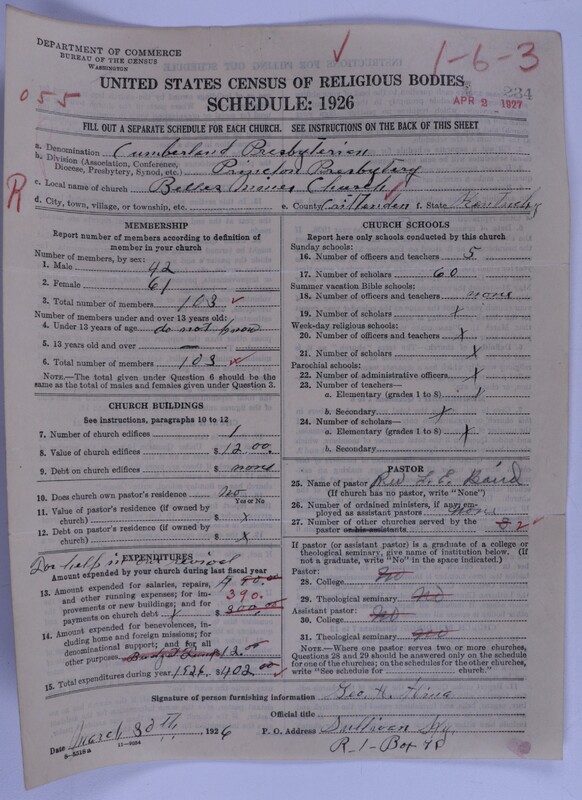 DEPARTMENT OF COMMERCE
BUREAU OF THE CENSUS
WASHINGTON
1-6-3
UNITED STATES CENSUS OF RELIGIOUS BODIES
SCHEDULE: 1926
234
APR 2 1927
055
FILL OUT A SEPARATE SCHEDULE FOR EACH CHURCH. SEE INSTRUCTIONS ON THE BACK OF THIS SHEET
a. Denomination Cumberland Presbyterian
b. Division (Association, Conference, Diocese, Presbytery, Synod, etc.) Princeton Presbytery
R
c. Local name of church Church
d. City, town, village, or township, etc. e. County Crittenden f. State Kentucky
MEMBERSHIP
Report number of members according to definition of member in your church
Number of members, by sex:
1. Male 42
2. Female 61
3. Total number of members 103
Number of members under and over 13 years old:
4. Under 13 years of age do not know
5. 13 years old and over —
6. Total number of members 103
NOTE.—The total given under Question 6 should be the same as the total of males and females given under Question 3.
CHURCH BUILDINGS
See instructions, paragraphs 10 to 12
7. Number of church edifices 1
8. Value of church edifices $ 1200
9. Debt on church edifices $ none
10. Does church own pastor's residence No
Yes or No
11. Value of pastor's residence (if owned by church) $ x
12. Debt on pastor's residence (if owned by church) $ x
EXPENDITURES
For help in revival
Amount expended by your church during last fiscal year
13. Amount expended for salaries, repairs, and other running expenses; for improvements or new buildings; and for payments on church debt $ 300.00
390.
14. Amount expended for benevolences, including home and foreign missions; for denominational support; and for all other purposes 12.00
15. Total expenditures during year 1926 $ 402.00
CHURCH SCHOOLS
Report here only schools conducted by this church
Sunday schools:
16. Number of officers and teachers 5
17. Number of scholars 60
Summer vacation Bible schools:
18. Number of officers and teachers none
19. Number of scholars x
Week-day religious schools:
20. Number of officers and teachers x
21. Number of scholars x
Parochial schools:
22. Number of administrative officers x
23. Number of teachers—
a. Elementary (grades 1 to 8) x
b. Secondary x
24. Number of scholars—
a. Elementary (grades 1 to 8) x
b. Secondary
PASTOR
25. Name of pastor Rev L. E. Baird
(If church has no pastor, write "None")
26. Number of ordained ministers, if any, employed as assistant pastors none
27. Number of other churches served by pastor or his assistants 2
If pastor (or assistant pastor) is a graduate of a college or theological seminary, give name of institution below. (If not a graduate, write "No" in the space indicated.)
Pastor:
28. College No
29. Theological seminary No
Assistant pastor:
30. College No
31. Theological seminary No
NOTE.—Where one pastor serves two or more churches, Questions 28 and 29 should be answered only on the schedule for one of the churches; on the schedules for the other churches, write "See schedule for church."
Signature of person furnishing information Geo. H.
Official title
Date March 30th, 1926 P. O. Address Sullivan Ky.
8-5319a 11-9084 R-1-Box 78